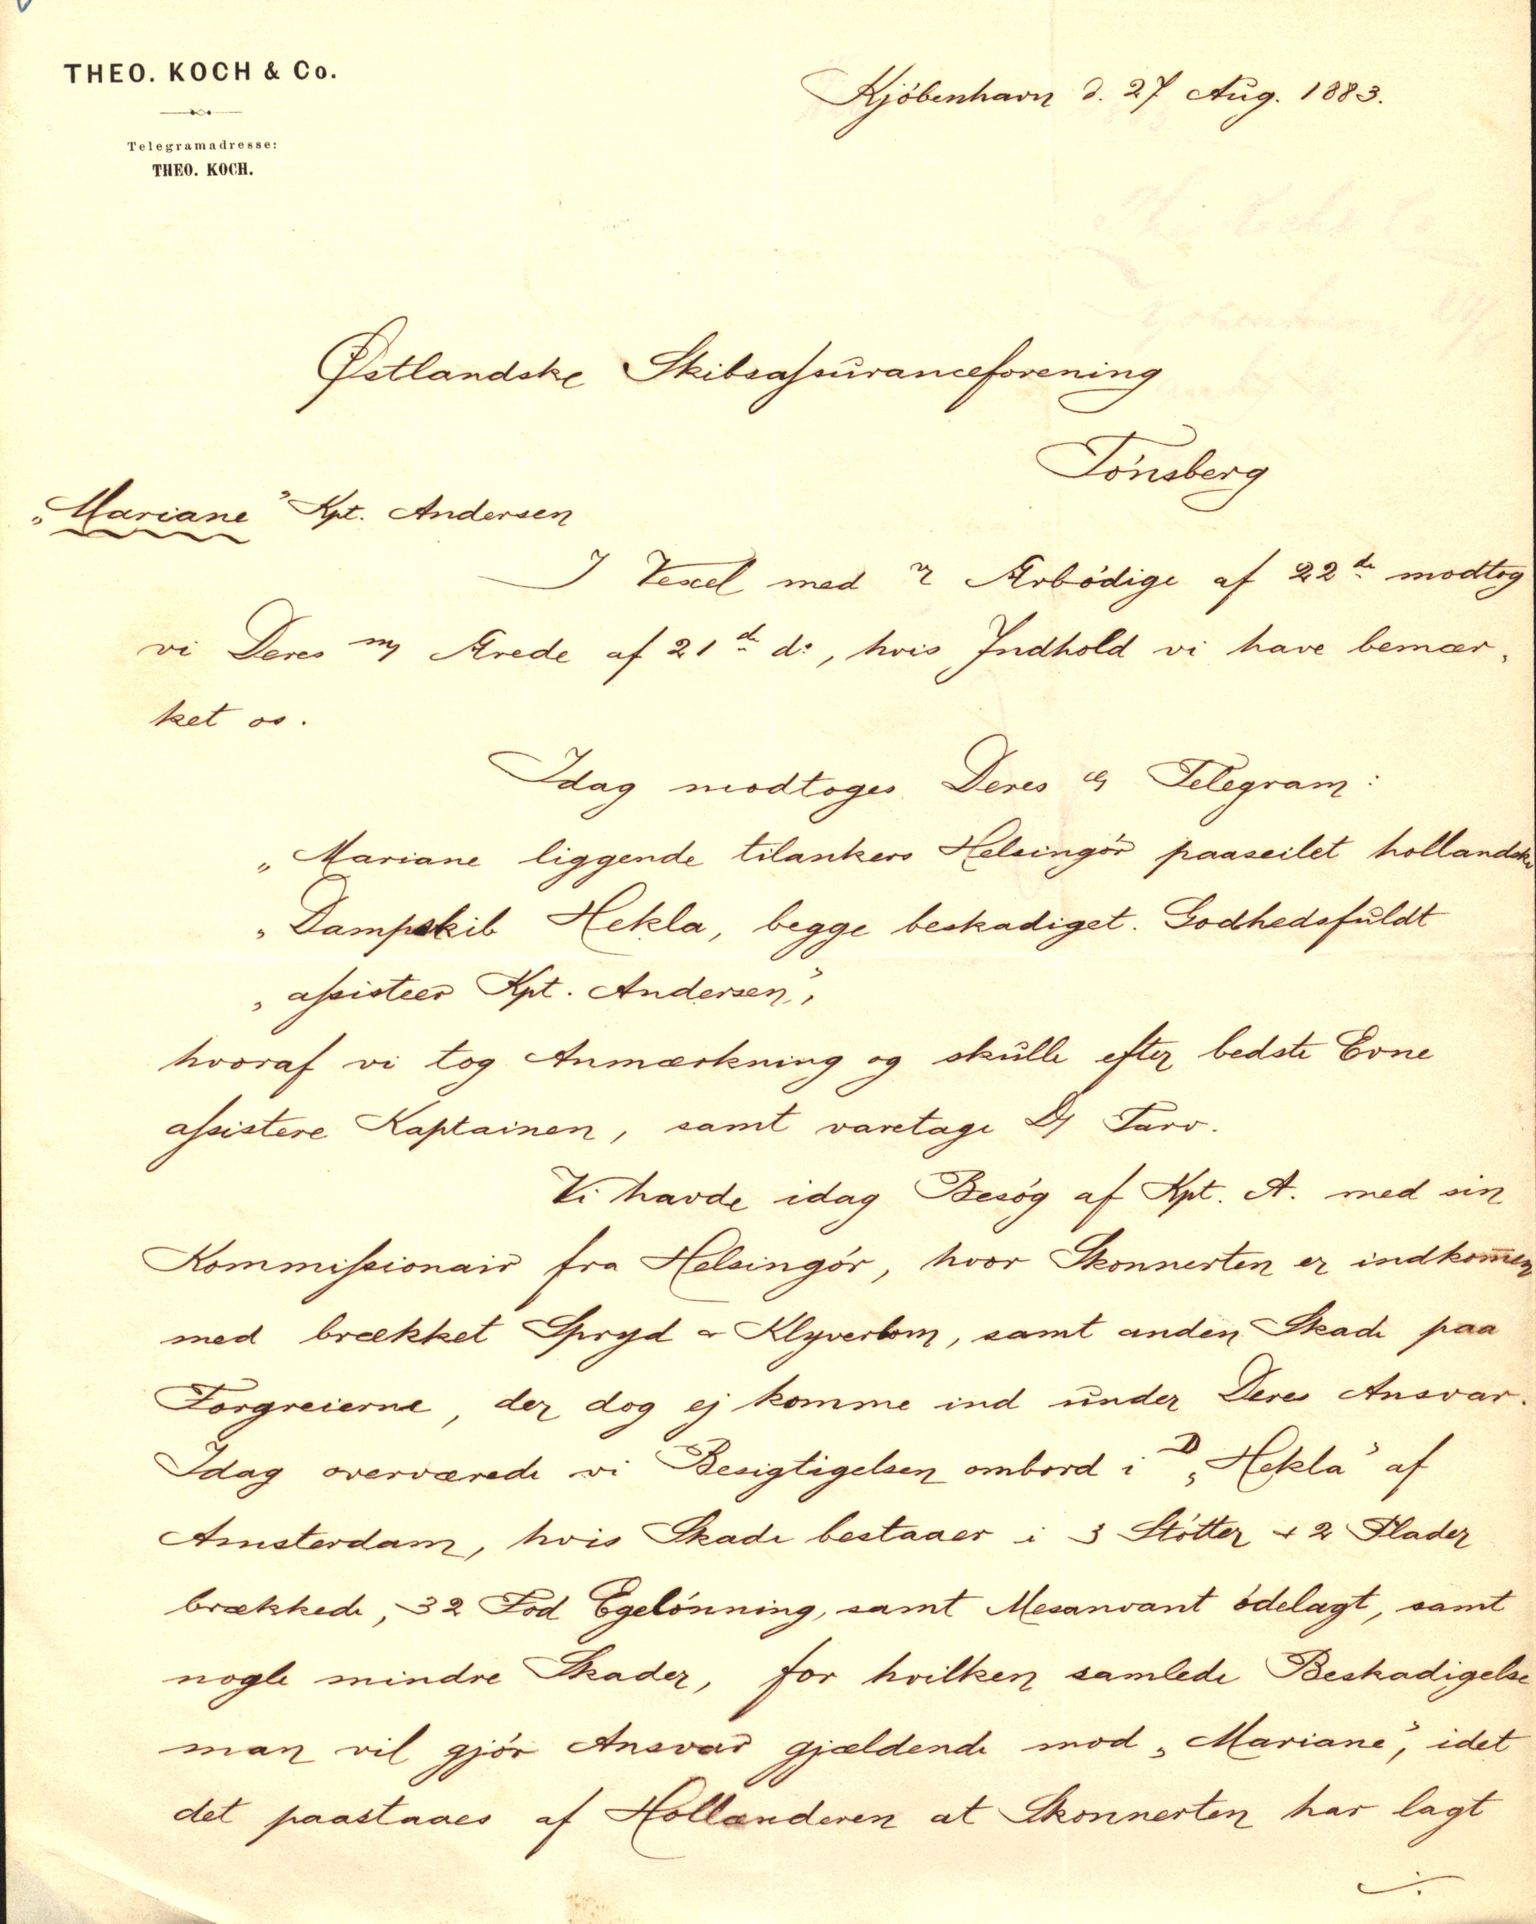 THEO. KOCH & Co.
Telegramadresse:
THEO. KOCH.
Kjöbenhavn d. 27 Aug. 1883.
Østlandske Skibsassuranceforening
Tönsberg
„Mariane” Kpt. Andersen
I Vexel med Ærbödige af 22de modtog
vi Deres Ærede af 21de do, hvis Indhold vi have bemær„
ket os.
Idag modtoges Deres Telegram:
„Mariane liggende tilankers Helsingör paaseilet hollandske
„Dampskib Hekla, begge beskadiget. Godhedsfuldt
„assisteer Kpt. Andersen”,
hvoraf vi tog Anmærkning og skulle efter bedste Evne
assistere Kaptainen, samt varetage Tarv.
Vi havde idag Besög af Kpt. A. med sin
Kommissionair fra Helsingör, hvor Skonnerten er indkommen
med brækket Spryd & Klyverbom, samt anden Skade paa
Forgreierne, der dog ej komme ind under Deres Ansvar.
Idag overværede vi Besigtigelsen ombord i D „Hekla” af
Amsterdam, hvis Skade bestaaer i 3 Stötter + 2 Plader
brækkede, 32 Fod Egelönning, samt Mesanvant ödelagt, samt
nogle mindre Skader, for hvilken samlede Beskadigelse
man vil gjör Ansvar gjældende mod „Mariane”, idet
det paastaaes af Hollænderen at Skonnerten har lagt
./.